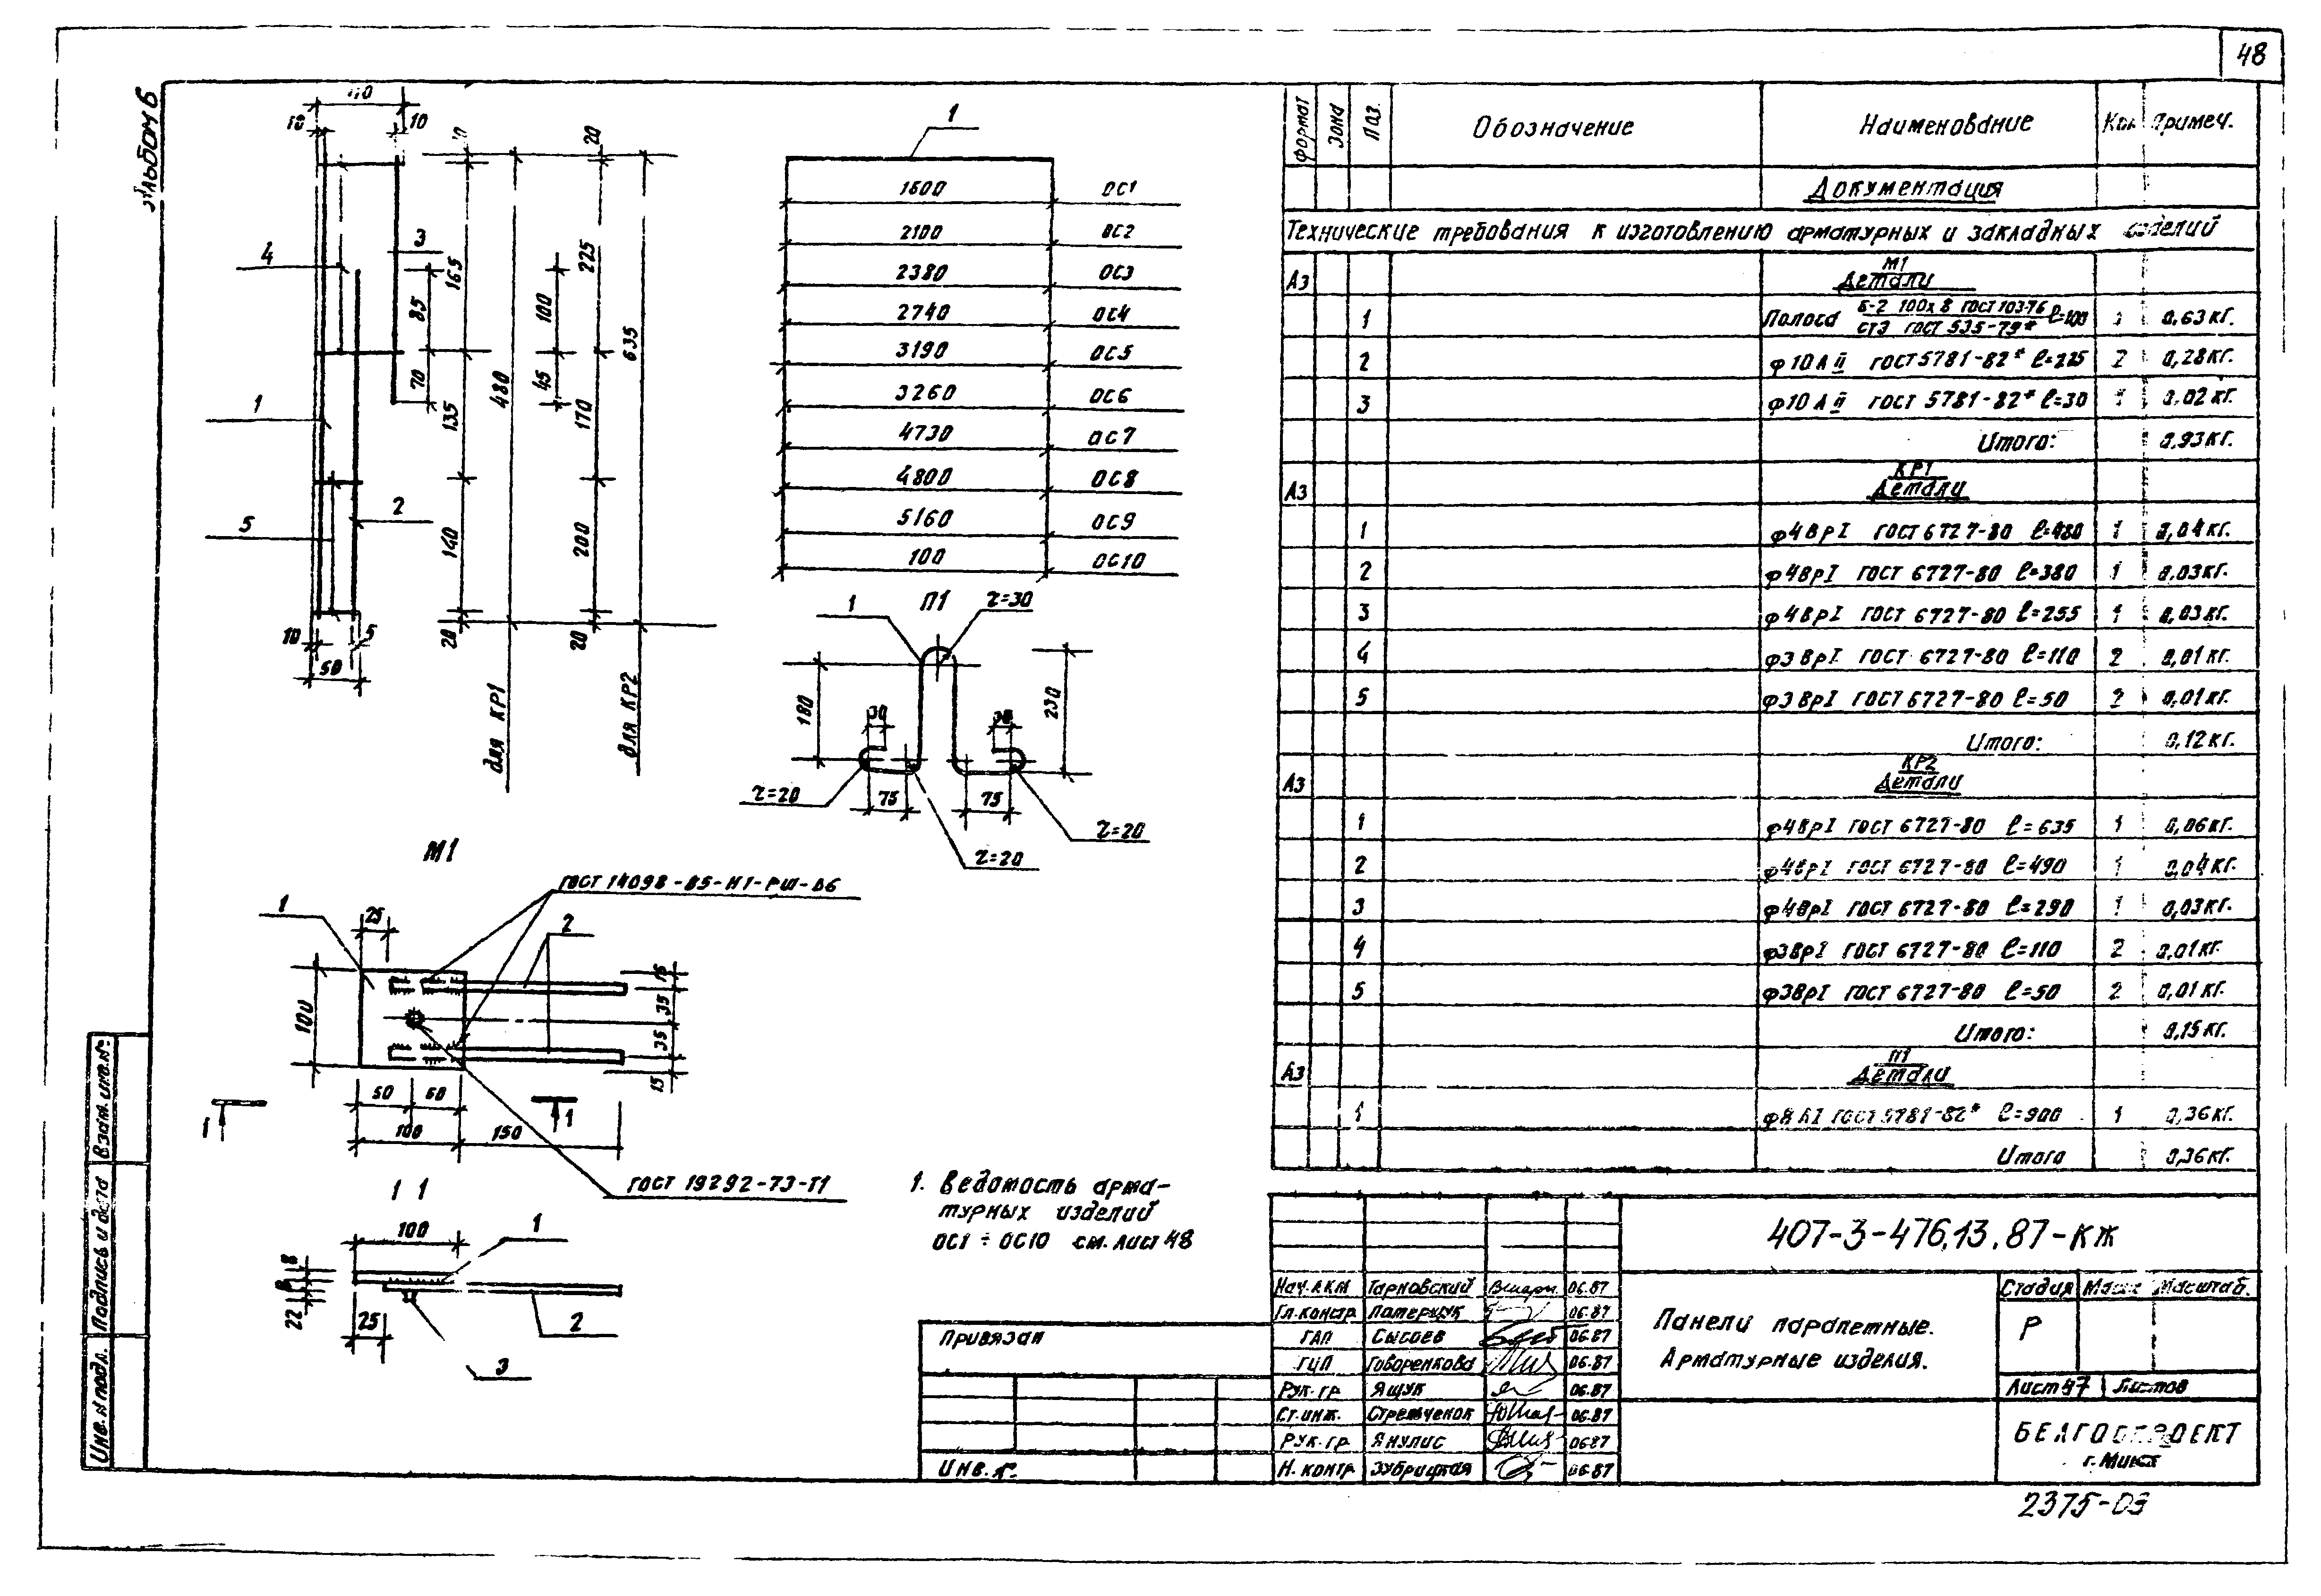 48
Альбом 6
110
10
10
10
20
3
4
85
165
100
225
70
480
45
635
1
135
170
5
2
140
200
10
5
20
20
50
для КР1
для КР2
1
1600 ОС1
2100 ОС2
2380 ОС3
2740 ОС4
3190 ОС5
3260 ОС6
4730 ОС7
4800 ОС8
5160 ОС9
100 ОС10
П1
1
r=30
180
230
30
30
75
75
r=20
r=20
r=20
М1
ГОСТ 14098-85-Н1-РШ-Δ6
1
25
2
100
15
35
35
15
50
100
150
1
1
ГОСТ 19292-73-Т1
1 1
100
1
8
22
25
2
3
1. Ведомость арма-
турных изделий
ОС1 ÷ ОС10 см. лист 48
Формат Зона Поз. Обозначение Наименование Кол Примеч.
Документация
Технические требования к изготовлению арматурных и закладных изделий
М1
А3 Детали
1 Полоса Б-2 100х8 ГОСТ 103-76 ℓ=100 0,63кг.
Ст3 ГОСТ 535-79*
2 ф10АII ГОСТ 5781-82* ℓ=225 2 0,28кг.
3 ф10АII ГОСТ 5781-82* ℓ=30 1 0,02кг.
Итого: 0,93кг.
КР1
А3 Детали
1 ф4ВрI ГОСТ 6727-80 ℓ=480 1 0,04кг.
2 ф4ВрI ГОСТ 6727-80 ℓ=380 1 0,03кг.
3 ф4ВрI ГОСТ 6727-80 ℓ=255 1 0,03кг.
4 ф3ВрI ГОСТ 6727-80 ℓ=110 2 0,01кг.
5 ф3ВрI ГОСТ 6727-80 ℓ=50 2 0,01кг.
Итого: 0,12кг.
КР2
А3 Детали
1 ф4ВрI ГОСТ 6727-80 ℓ=635 1 0,06кг.
2 ф4ВрI ГОСТ 6727-80 ℓ=490 1 0,04кг.
3 ф4ВрI ГОСТ 6727-80 ℓ=290 1 0,03кг.
4 ф3ВрI ГОСТ 6727-80 ℓ=110 2 0,01кг.
5 ф3ВрI ГОСТ 6727-80 ℓ=50 2 0,01кг.
Итого: 0,15кг.
П1
А3 Детали
1 ф8АI ГОСТ 5781-82* ℓ=900 1 0,36кг.
Итого 0,36кг.
407-3-476.13.87-КЖ
Нач.АКМ Тарновский 06.87
Гл.констр 06.87
ГАП Сысоев 06.87
ГИП Говоренкова 06.87
Рук.гр Ящук 06.87
Ст.инж. Стрельченок 06.87
Рук.гр Янулис 06.87
Н.контр Зубрицкая 06.87
Панели парапетные.
Арматурные изделия.
Стадия Масса Масштаб.
Р
Лист 47 Листов
БЕЛГОСПРОЕКТ
г. Минск
Привязан
Инв.№
Инв.№подл. Подпись и дата Взам.инв.№
2375-03